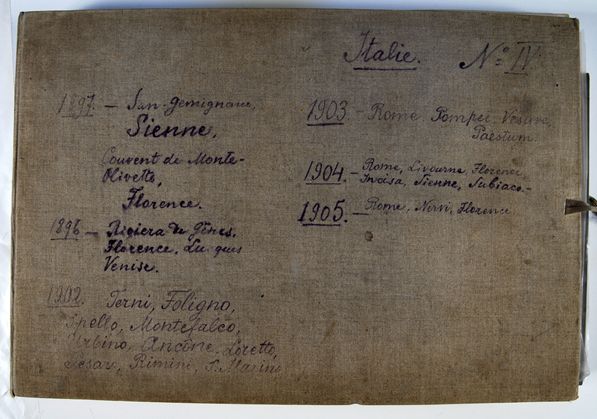 Italie. Nº IV
1897. — San-Gemignano,
Sienne,
Couvent de Monte-
Oliveto,
Florence.
— Riviera de Gênes.
Florence.
Venise.
1902. Terni, Foligno,
Spello, Montefalco,
Urbino, Ancône, Loretto,
Pesaro, Rimini, S. Marino
1903. — Rome. Pompei. Vesuve,
Paestum.
1904. — Rome, Livourne, Florence,
Sienne, Subiaco. -
1905. — Rome, Nervi, Florence